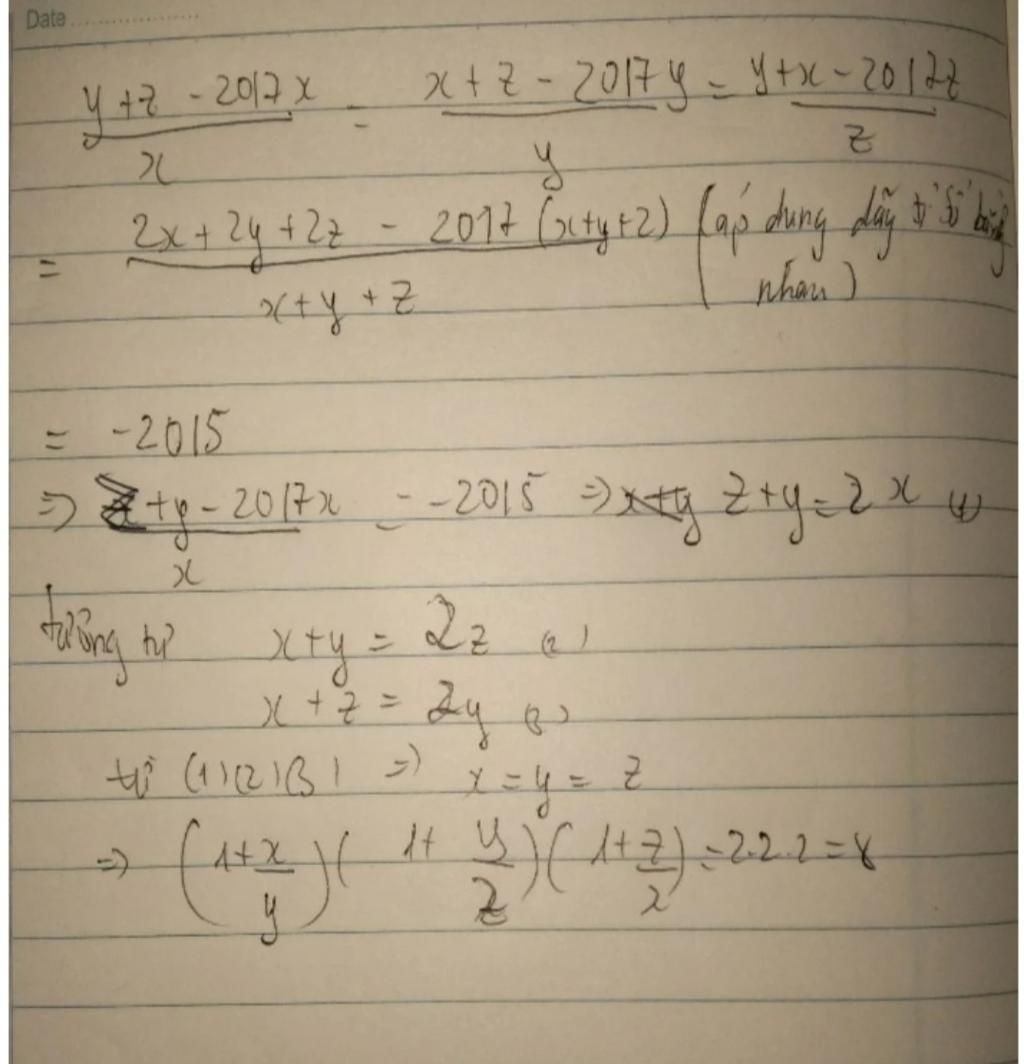 Date
(y+z-2017x)/x = (x+z-2017y)/y = (y+x-2017z)/z
= (2x+2y+2z - 2017(x+y+z))/(x+y+z) (áp dụng dãy tỉ số bằng
nhau)
= -2015
=> (z+y-2017x)/x = -2015 => z+y=2x (1)
tương tự x+y = 2z (2)
x+z = 2y (3)
từ (1)(2)(3) => x=y=z
=> (1+x/y)(1+y/z)(1+z/x)=2.2.2=8